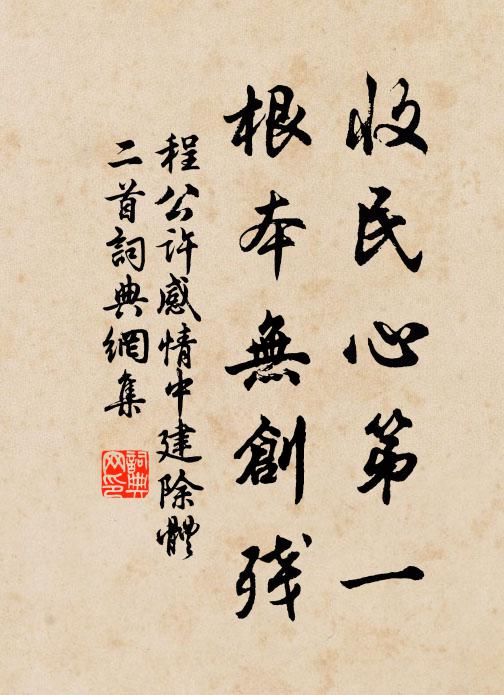 收民心第一
根本無創殘
程公許感情中建除體
二首詞典網集
詞典
网印